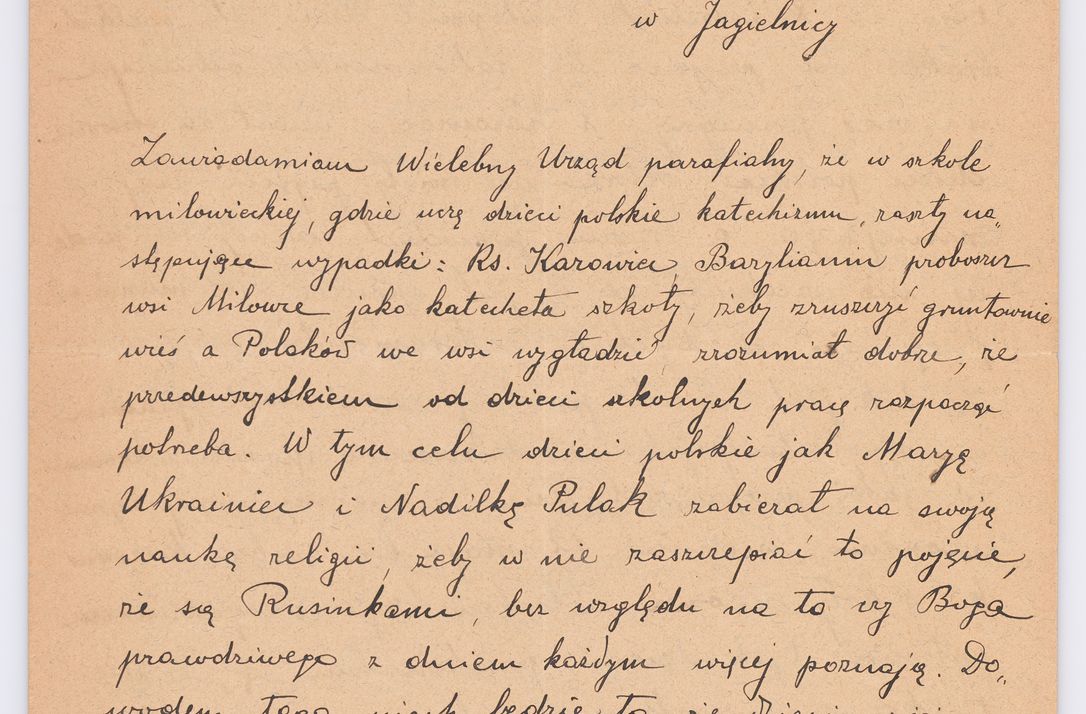 w Jagielnicy
Zawiadamiam Wielebny Urząd parafialny, że w szkole
milowieckiej, gdzie uczę dzieci polskie katechizmu, zaszły na„
stępujące wypadki: Ks. Karowiec, Bazylianin proboszcz
wsi Milowce jako katecheta szkoły, żeby zruszczyć gruntownie
wieś a Polaków we wsi wygładzić zrozumiał dobrze, że
przedewszystkiem od dzieci szkolnych pracę rozpocząć
potrzeba. W tym celu dzieci polskie jak Maryę
Ukrainiec i Nadilkę Pulak zabierał na swoją
naukę religii, żeby w nie zaszczepiać to pojęcie,
że są Rusinkami, bez względu na to czy Boga
prawdziwego z dniem każdym więcej poznają. Do„
wodem tego niech będzie to, że dzieci